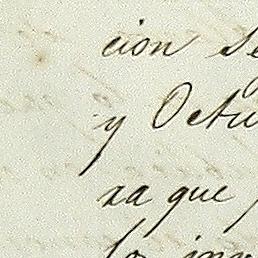 cion Se
y Octu
za que
lo inv